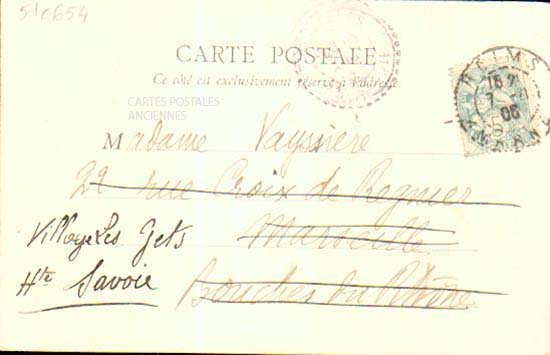 510654
CARTE POSTALE
Ce côté est exclusivement réservé à l'adresse
CARTES POSTALES
ANCIENNES
REIMS
18
7
06
MARNE
Madame Vayssiere
22 rue Croix de Regnier
Marseille
Bouches du Rhône
Village Les Gets
Hte Savoie